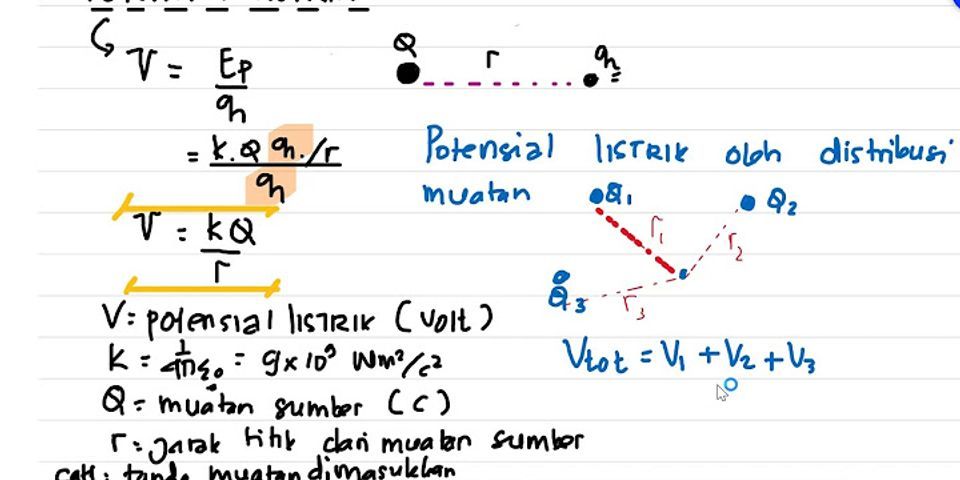 V = Ep/q
Q r q
= k.Q q./r / q
Potensial LISTRIK oleh distribusi
muatan Q₁ Q₂
V = kQ/r
r₁ r₂
Q₃ r₃
V = potensial LISTRIK (Volt)
k = 1/4πε₀ = 9x10⁹ Nm²/c²
Vtot = V₁ + V₂ + V₃
Q = muatan sumber (C)
r = jarak titik dari muatan sumber
catt: tanda muatan dimasukkan